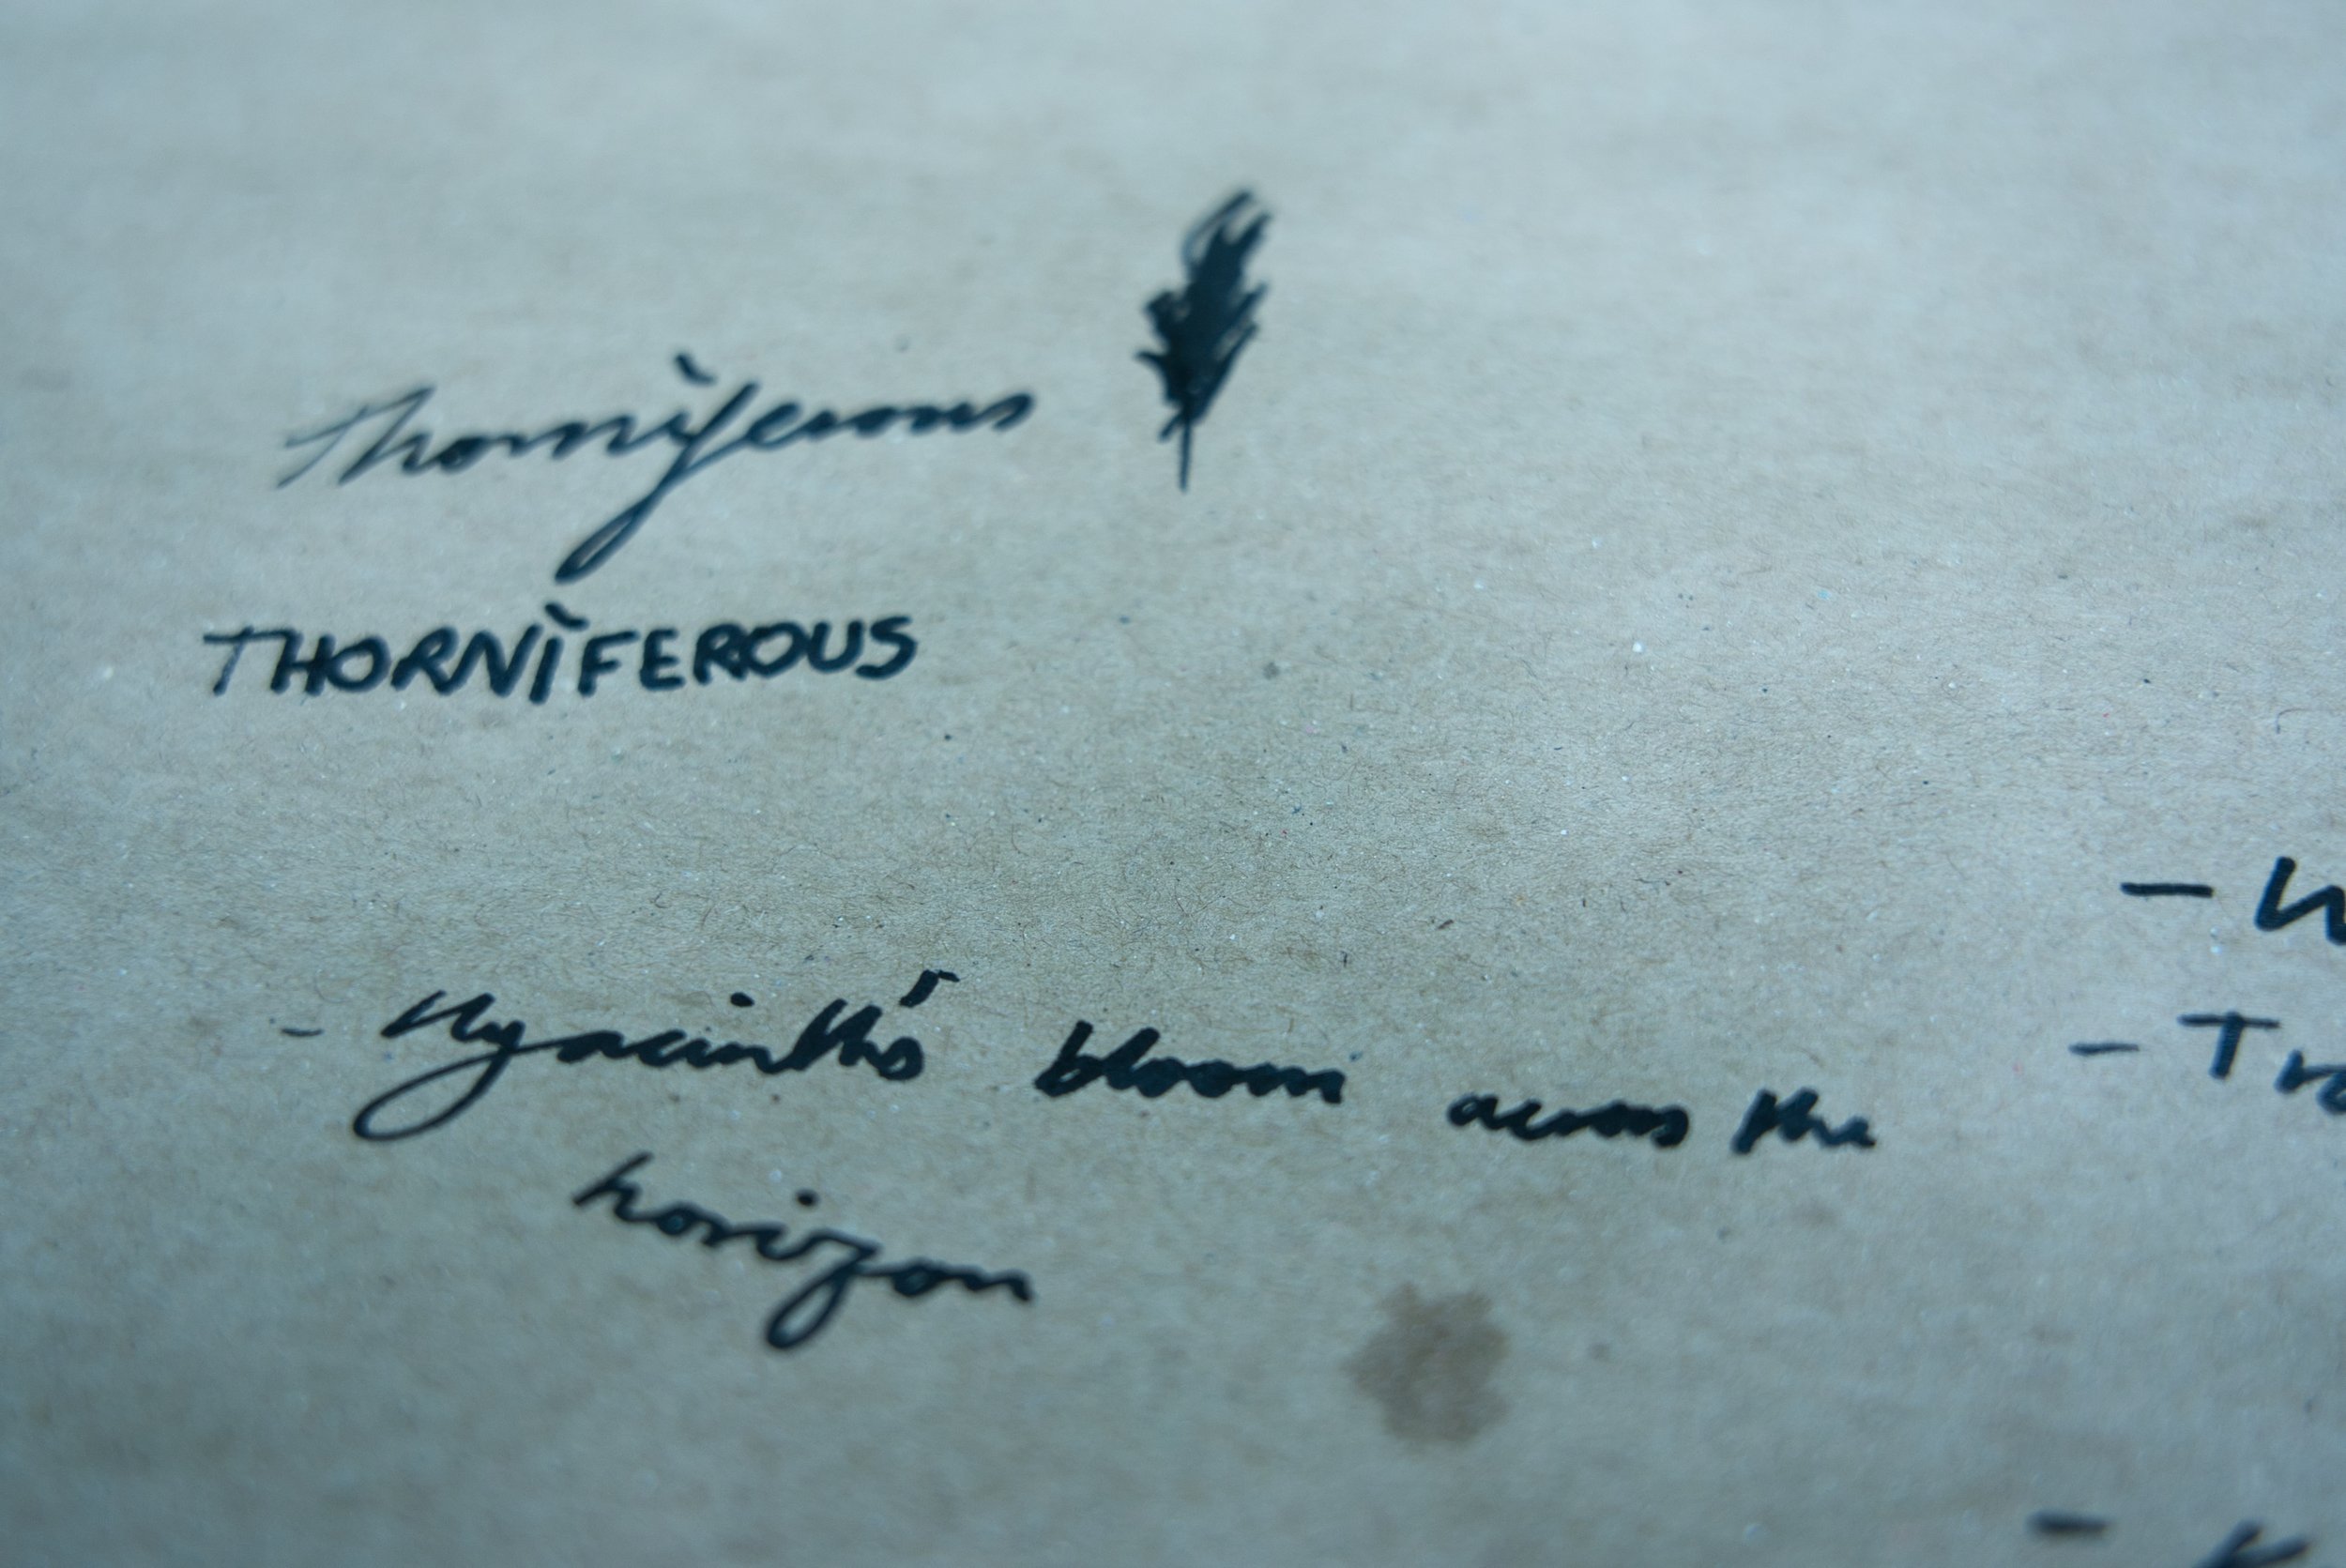 Thorniferous
THORNIFEROUS
- Hyacinths' bloom across the
horizon
- W
- Tra
-